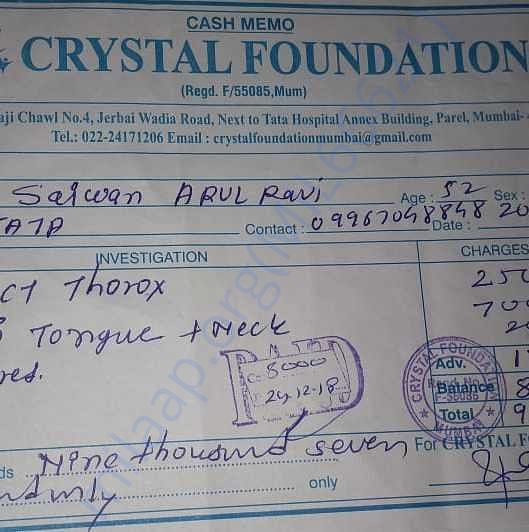 CASH MEMO
CRYSTAL FOUNDATION
(Regd. F/55085,Mum)
aji Chawl No.4, Jerbai Wadia Road, Next to Tata Hospital Annex Building, Parel, Mumbai-
Tel.: 022-24171206 Email : crystalfoundationmumbai@gmail.com
Saiwan ARUL Ravi Age : 52 Sex :
TATA Contact : 09967048848 Date : 20
INVESTIGATION CHARGES
CT Thorox 250
Tongue + Neck 700
Adv. 1
5000
24.12.18
Balance 8
Total 9
CRYSTAL FOUNDA
F-55085
MUMBAI
ds Nine thousand seven For CRYSTAL F
only
milaap.org